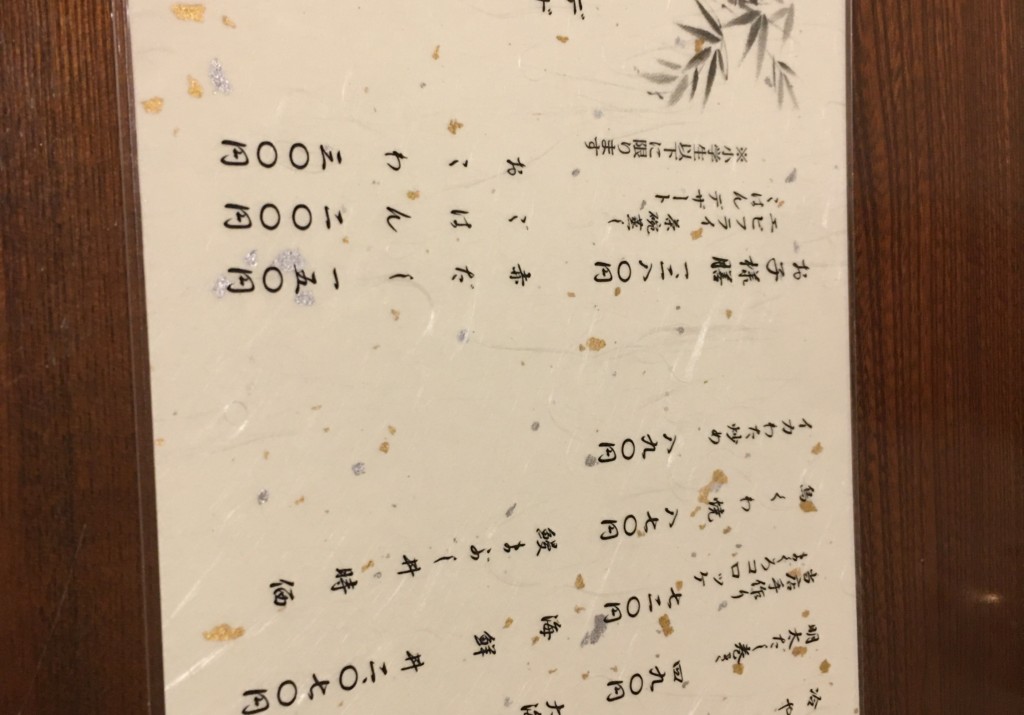 明太だし巻き 四九〇円
当店手作り
まぐろコロッケ 七二〇円
鳥くわ焼 八七〇円
イカわた炒め 八九〇円
お子様膳 一、二八〇円
エビフライ 茶碗蒸し
ごはん デザート
※小学生以下に限ります
海鮮丼 二、〇七〇円
鰻まぶし丼 時価
赤だし 一五〇円
ごはん 二〇〇円
おこわ 三〇〇円